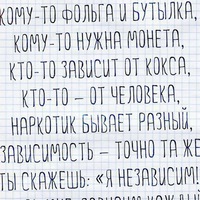 КОМУ-ТО ФОЛЬГА И БУТЫЛКА,
КОМУ-ТО НУЖНА МОНЕТА,
КТО-ТО ЗАВИСИТ ОТ КОКСА,
КТО-ТО – ОТ ЧЕЛОВЕКА,
НАРКОТИК БЫВАЕТ РАЗНЫЙ,
ЗАВИСИМОСТЬ – ТОЧНО ТА ЖЕ
ТЫ СКАЖЕШЬ: «Я НЕЗАВИСИМ!